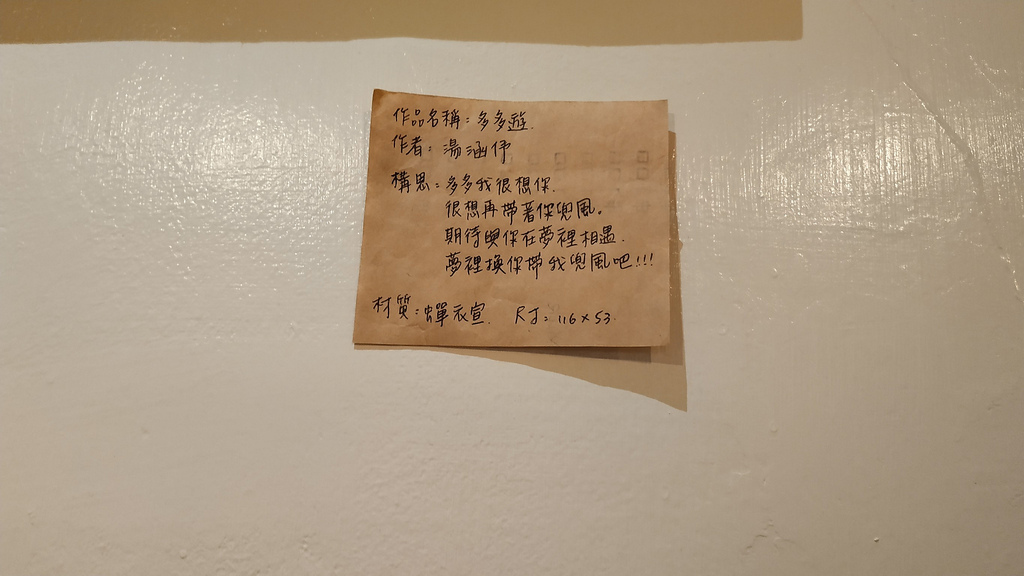 作品名稱：多多遊.
作者：湯涵伃
構思：多多我很想你.
很想再帶著你兜風。
期待與你在夢裡相遇.
夢裡換你帶我兜風吧!!!
材質：蟬衣宣. 尺寸：116×53.